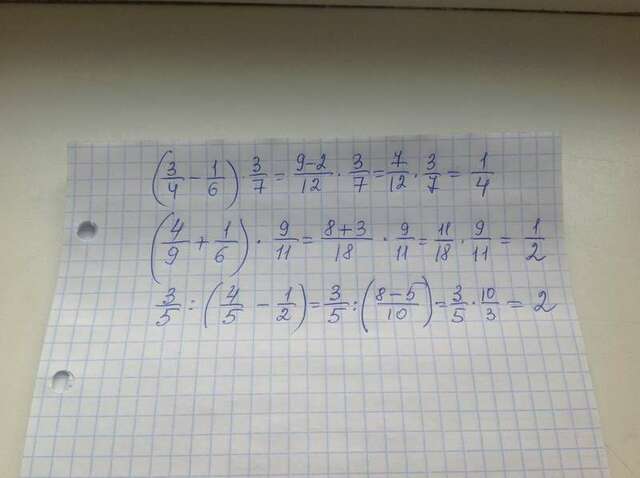 (3/4 - 1/6) · 3/7 = 9-2/12 · 3/7 = 7/12 · 3/7 = 1/4
(4/9 + 1/6) · 9/11 = 8+3/18 · 9/11 = 11/18 · 9/11 = 1/2
3/5 : (4/5 - 1/2) = 3/5 : (8-5/10) = 3/5 · 10/3 = 2